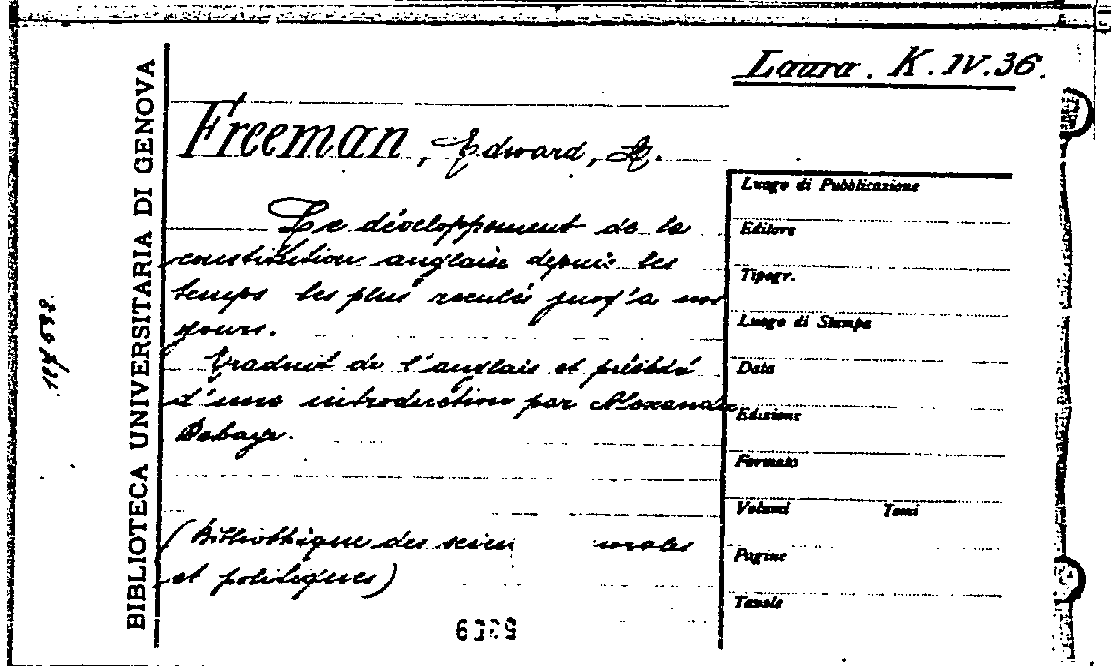 Laura. K. IV. 36.
BIBLIOTECA UNIVERSITARIA DI GENOVA
Freeman, Edward, A.
Le développement de la
constitution anglaise depuis les
temps les plus reculés jusq'a nos
jours.
Traduit de l'anglais et précédé
d'une introduction par Alexandre
Dehaye.
(Bibliothèque des scien morales
et politiques)
Luogo di Pubblicazione
Editore
Tipogr.
Luogo di Stampa
Data
Edizione
Formato
Volumi Tomi
Pagine
Tavole